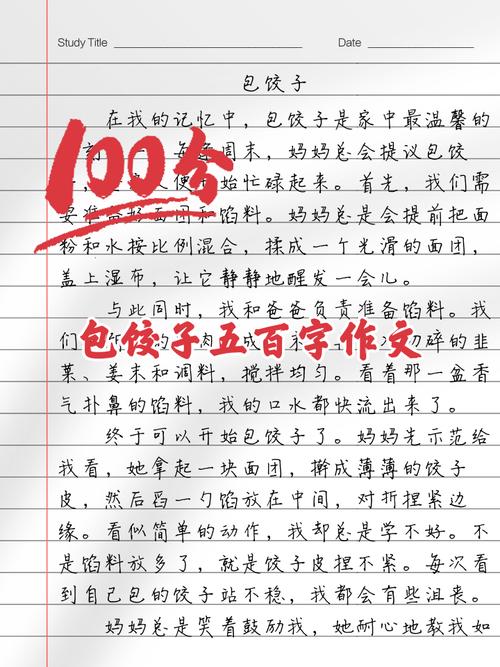 Study Title
Date
包饺子
在我的记忆中，包饺子是家中最温馨的
100分
周末，妈妈总会提议包饺
便 始忙碌起来。首先，我们需
要准备好面团和馅料。妈妈总是会提前把面
粉和水按比例混合，揉成一个光滑的面团，
盖上湿布，让它静静地醒发一会儿。
与此同时，我和爸爸负责准备馅料。我
包饺子五百字作文
们 肉 成 切碎的韭
菜、姜末和调料，搅拌均匀。看着那一盆香
气扑鼻的馅料，我的口水都快流出来了。
终于可以开始包饺子了。妈妈先示范给
我看，她拿起一块面团，擀成薄薄的饺子
皮，然后舀一勺馅放在中间，对折捏紧边
缘。看似简单的动作，我却总是学不好。不
是馅料放多了，就是饺子皮捏不紧。每次看
到自己包的饺子站不稳，我都会有些沮丧。
妈妈总是笑着鼓励我，她耐心地教我如